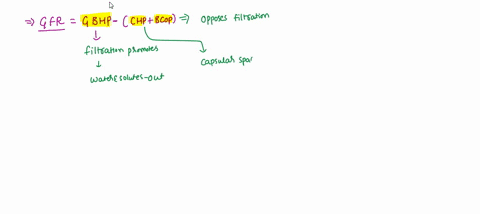 ⇒ GFR = GBHP - (CHP + BCOP) ⇒ opposes filtration
filtration promotes
capsular spa
water & solutes-out